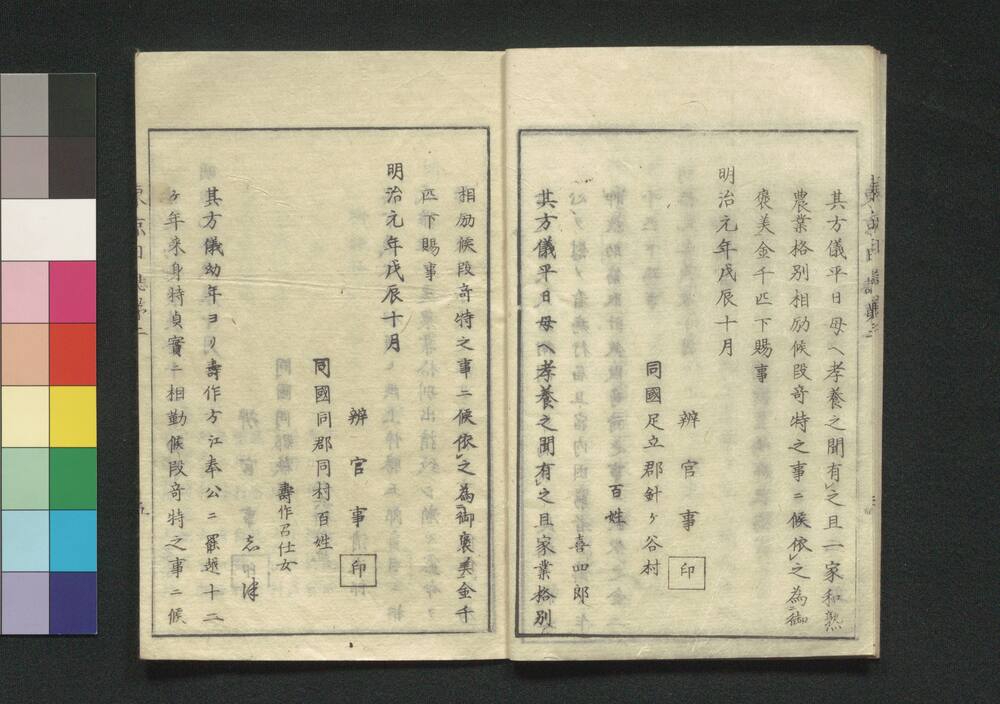 其方儀平日母ヘ孝養之聞有レ之且一家和熟
農業格別相励候段奇特之事ニ候依レ之為ニ御
褒美金千匹下賜事
明治元年戊辰十月
辨官事 印
同國足立郡針ヶ谷村
百姓
喜四郎
其方儀平日母ヘ孝養之聞有レ之且家業格別
相励候段奇特之事ニ候依レ之為ニ御褒美金千
匹下賜事
明治元年戊辰十月
辨官事 印
同國同郡同村百姓
壽作召仕女
其方儀幼年ヨリ壽作方江奉公ニ罷越十二
ヶ年来身持貞實ニ相勤候段奇特之事ニ候